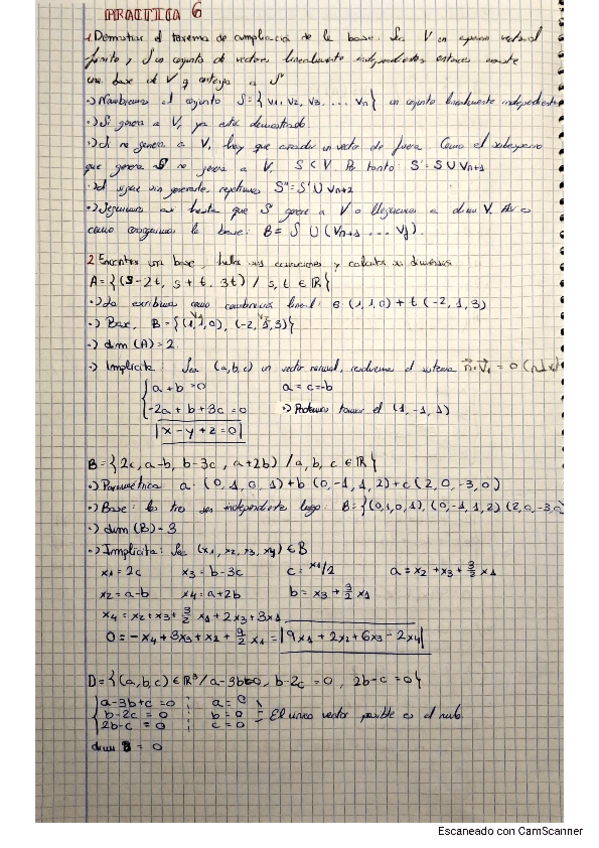 PRACTICA 6
1 Demostrar el teorema de ampliación de la base. Sea V un espacio vectorial
finito, S un conjunto de vectores linealmente independientes entonces existe
una base de V q contenga a S
·) Nombremos el conjunto S = {v1, v2, v3, ... vn} un conjunto linealmente independiente
·) Si genera a V, ya está demostrado.
·) Si no genera a V, hay que añadir un vector de fuera. Como el subespacio
que genera S no genera a V, S < V Por tanto: S' = S ∪ Vn+1
·) Si sigue sin generarlo, repetimos S'' = S' ∪ Vn+2
·) Seguimos así hasta que S genere a V o lleguemos a dim V. Así es
como conseguimos la base: B = S ∪ (Vn+1 ... Vj).
2 Encontrar una base, halla sus ecuaciones y calcula su dimensión
A = {(s-2t, s+t, 3t) / s, t ∈ ℝ}
·) La escribimos como combinación lineal: s (1,1,0) + t (-2,1,3)
·) Base, B = {(1,1,0), (-2,1,3)}
·) dim (A) = 2.
·) Implícita: Sea (a,b,c) un vector normal, resolvemos el sistema n·V1 = 0
a + b = 0 a = c = -b
-2a + b + 3c = 0 ·) Podemos tomar el (1,-1,1)
x - y + z = 0
B = {2c, a-b, b-3c, a+2b) / a, b, c ∈ ℝ}
·) Paramétrica a·(0,1,0,1) + b (0,-1,1,2) + c (2,0,-3,0)
·) Base: los tres son independientes luego: B = {(0,1,0,1), (0,-1,1,2) (2,0,-3,0
·) dim (B) = 3
·) Implícita: Sea (x1, x2, x3, x4) ∈ B
x1 = 2c x3 = b-3c c = x1/2 a = x2 + x3 + 3/2 x1
x2 = a-b x4 = a+2b b = x3 + 3/2 x1
x4 = x2 + x3 + 3/2 x1 + 2x3 + 3x1
0 = -x4 + 3x3 + x2 + 9/2 x1 = 9x1 + 2x2 + 6x3 - 2x4
D = {(a,b,c) ∈ ℝ³ / a-3b=0, b-2c = 0, 2b-c = 0}
a-3b+c = 0 a = 0
b-2c = 0 b = 0 = El único vector posible es el nulo
2b-c = 0 c = 0
dim B = 0
Escaneado con CamScanner